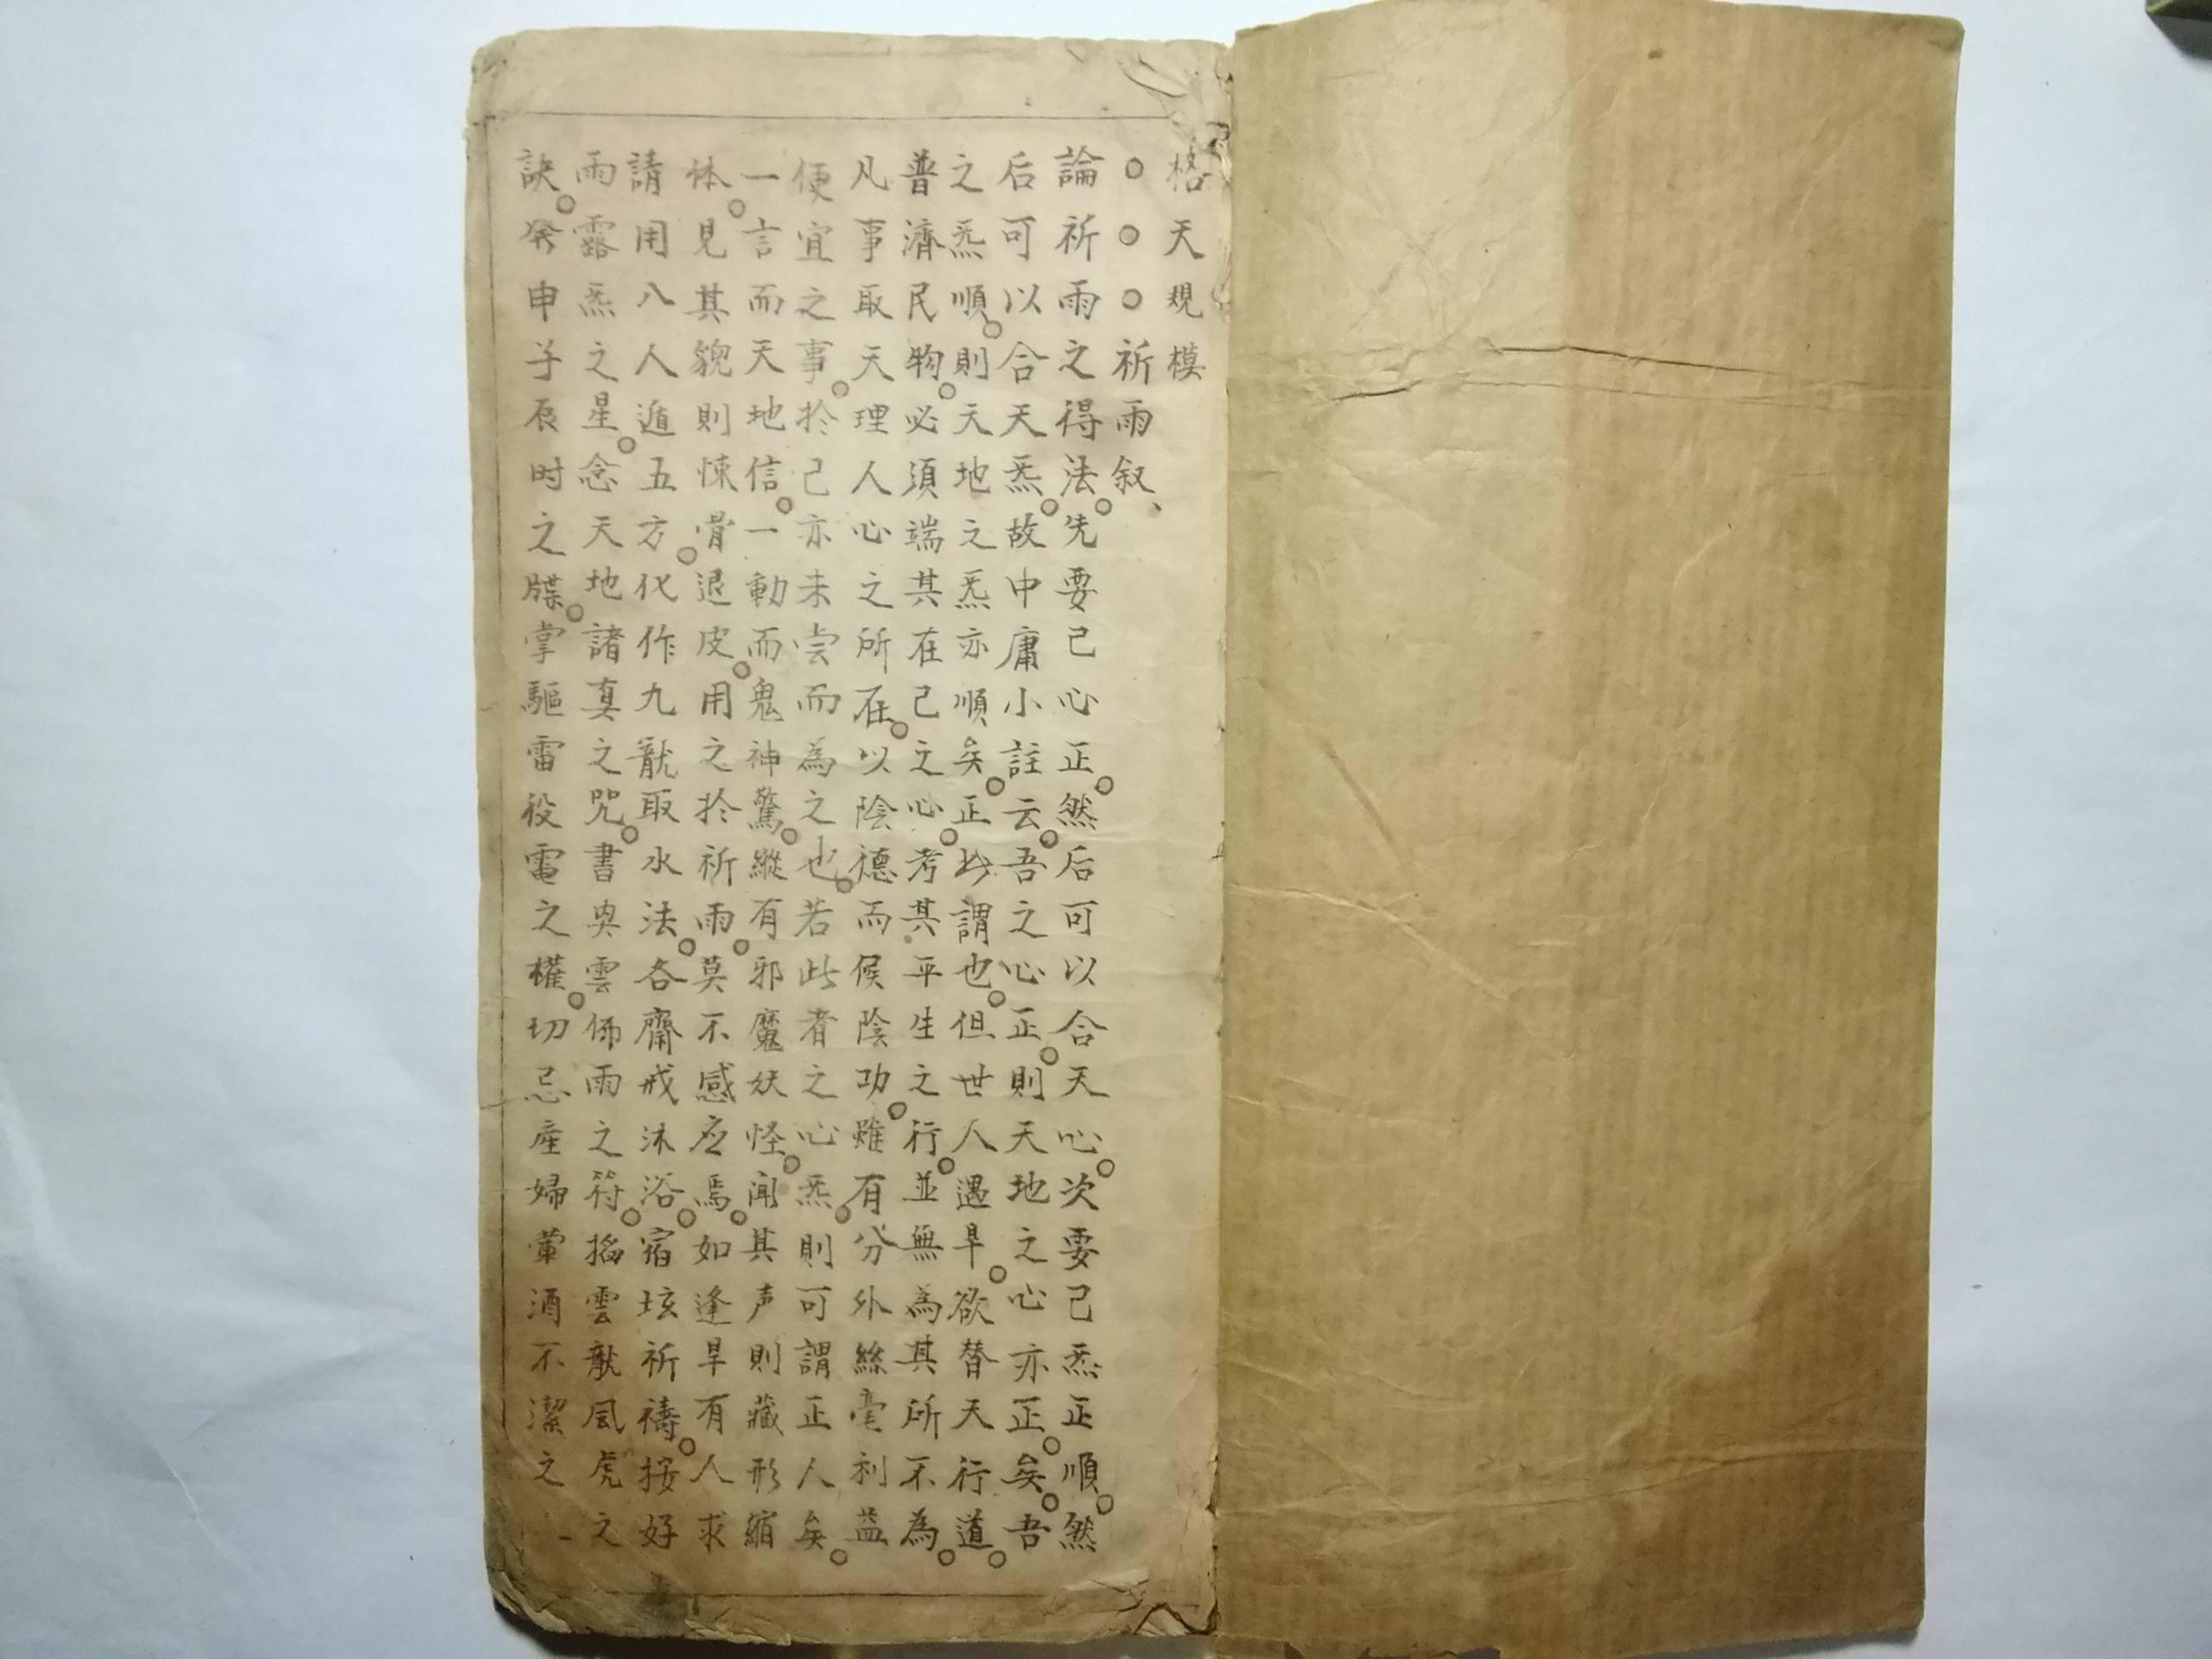 格天規模
○○○祈雨叙、
論祈雨之得法。先要己心正。然后可以合天心。次要己炁正順。然
后可以合天炁。故中庸小註云。吾之心正。則天地之心亦正。矣。吾
之炁順。則天地之炁亦順矣。正此謂也。但世人遇旱。欲替天行道。
普濟民物。必須端其在己之心。考其平生之行。並無為其所不為。
凡事取天理人心之所在。以陰德而候陰功。雖有分外絲毫利益
便宜之事。於己亦未尝而為之也。若此者之心炁。則可謂正人矣。
一言而天地信。一動而鬼神驚。縱有邪魔妖怪。闻其声則藏形縮
体。見其貌則悚骨退皮。用之於祈雨。莫不感应焉。如逢旱有人求
請用八人遁五方。化作九龍取水法。各齋戒沐浴。宿坛祈禱。按好
雨露炁之星。念天地諸真之咒。書興雲佈雨之符。搯雲龍風虎之
訣。発申子辰时之牒。掌驅雷役電之權。切忌産婦葷酒不潔之